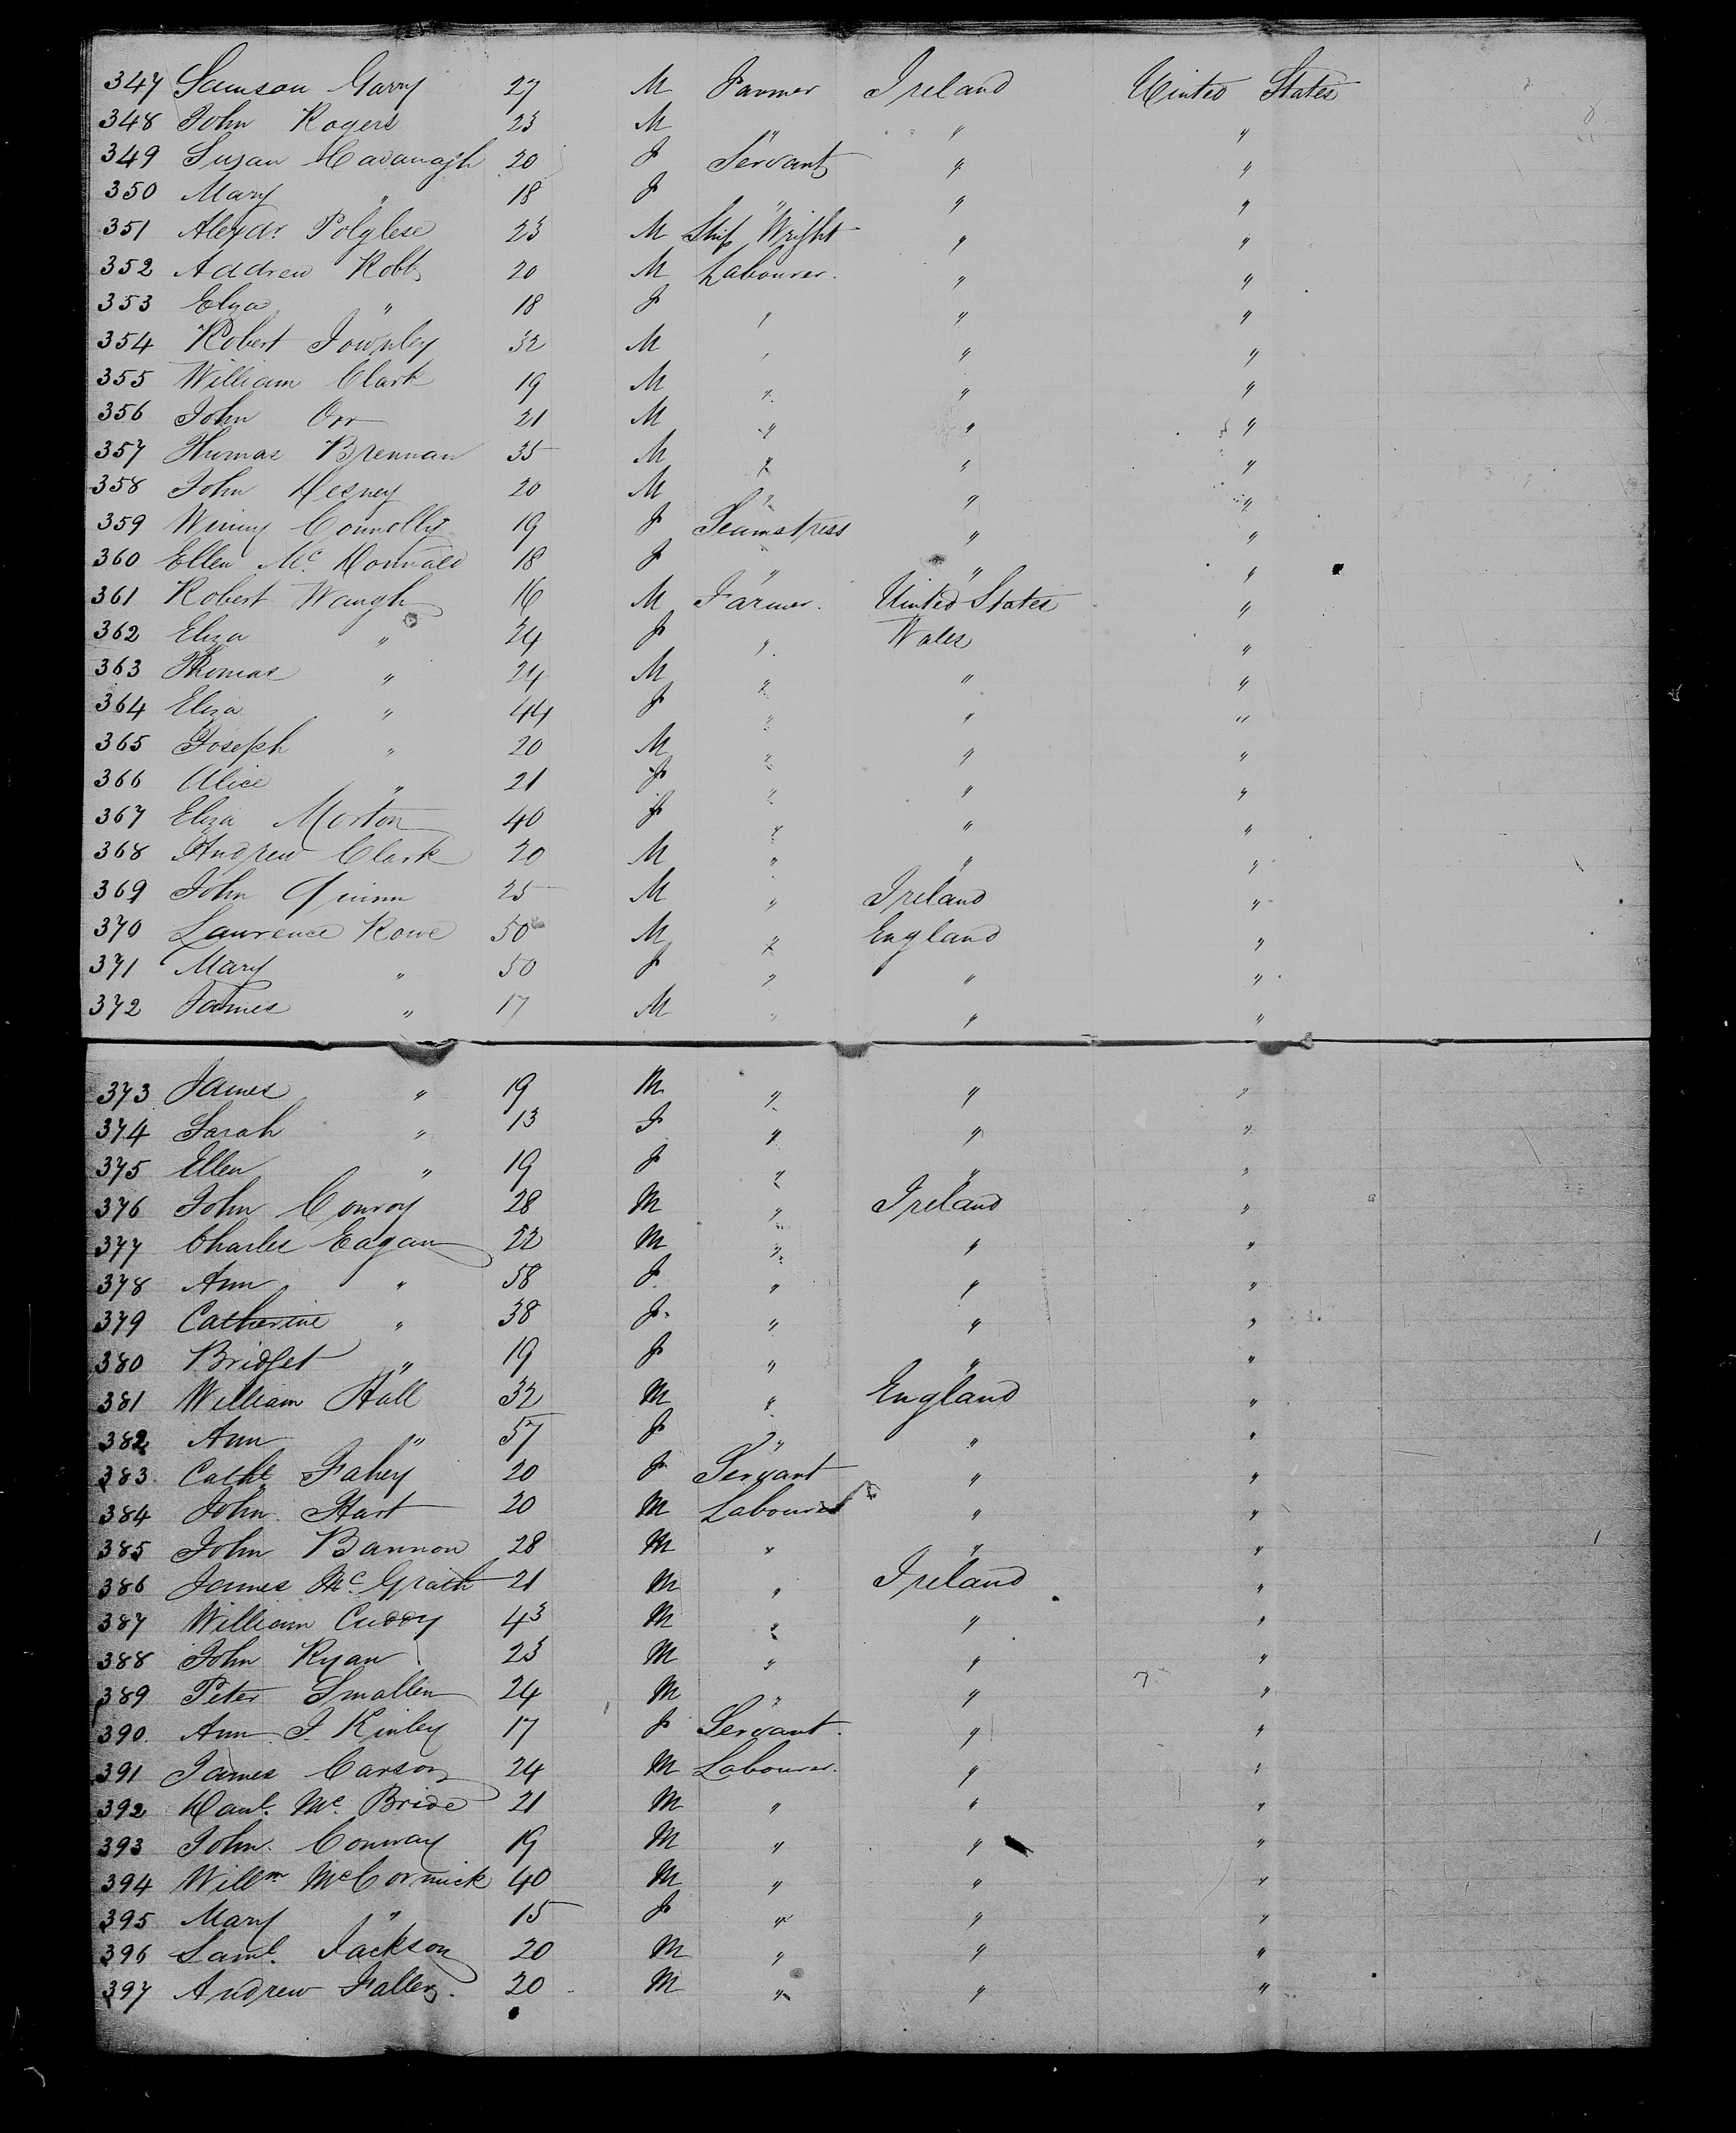 347 Samson Garry 27 M Farmer Ireland United States
348 John Rogers 23 M " " "
349 Susan Cavanagh 20 F Servant " "
350 Mary " 18 F " " "
351 Alexdr. Polglese 23 M Ship Wright " "
352 Addrew Robb 20 M Labourer. " "
353 Eliza " 18 F " " "
354 Robert Townley 32 M " " "
355 William Clark 19 M " " "
356 John Orr 21 M " " "
357 Thomas Brennan 35 M " " "
358 John Hesney 20 M " " "
359 Winny Connolly 19 F Seamstress " "
360 Ellen Mc. Donnald 18 F " " "
361 Robert Waugh 16 M Farmer. United States "
362 Eliza " 24 F " Wales "
363 Thomas " 24 M " " "
364 Eliza " 44 F " " "
365 Joseph " 20 M " " "
366 Alice " 21 F " " "
367 Eliza Morton 40 F " " "
368 Andrew Clark 20 M " " "
369 John Quinn 25 M " Ireland "
370 Lawrence Rowe 50 M " England "
371 Mary " 50 F " " "
372 James " 17 M " " "
373 James " 19 M " " "
374 Sarah " 13 F " " "
375 Ellen " 19 F " " "
376 John Conroy 28 M " Ireland "
377 Charles Eagan 52 M " " "
378 Ann " 58 F " " "
379 Catherine " 38 F " " "
380 Bridget " 19 F " " "
381 William Hall 32 M " England "
382 Ann " 57 F " " "
383 Cathe Fahey 20 F Servant " "
384 John Hart 20 M Labourer " "
385 John Bannon 28 M " " "
386 James Mc. Grath 21 M " Ireland "
387 William Cuddy 43 M " " "
388 John Ryan 23 M " " "
389 Peter Smallen 24 M " " "
390. Ann J. Kinley 17 F Servant. " "
391 James Carson 24 M Labourer. " "
392 Danl. Mc. Bride 21 M " " "
393 John. Conway 19 M " " "
394 Willm McCormick 40 M " " "
395 Mary " 15 F " " "
396 Saml. Jackson 20 M " " "
397 Andrew Fallen. 20 M " " "